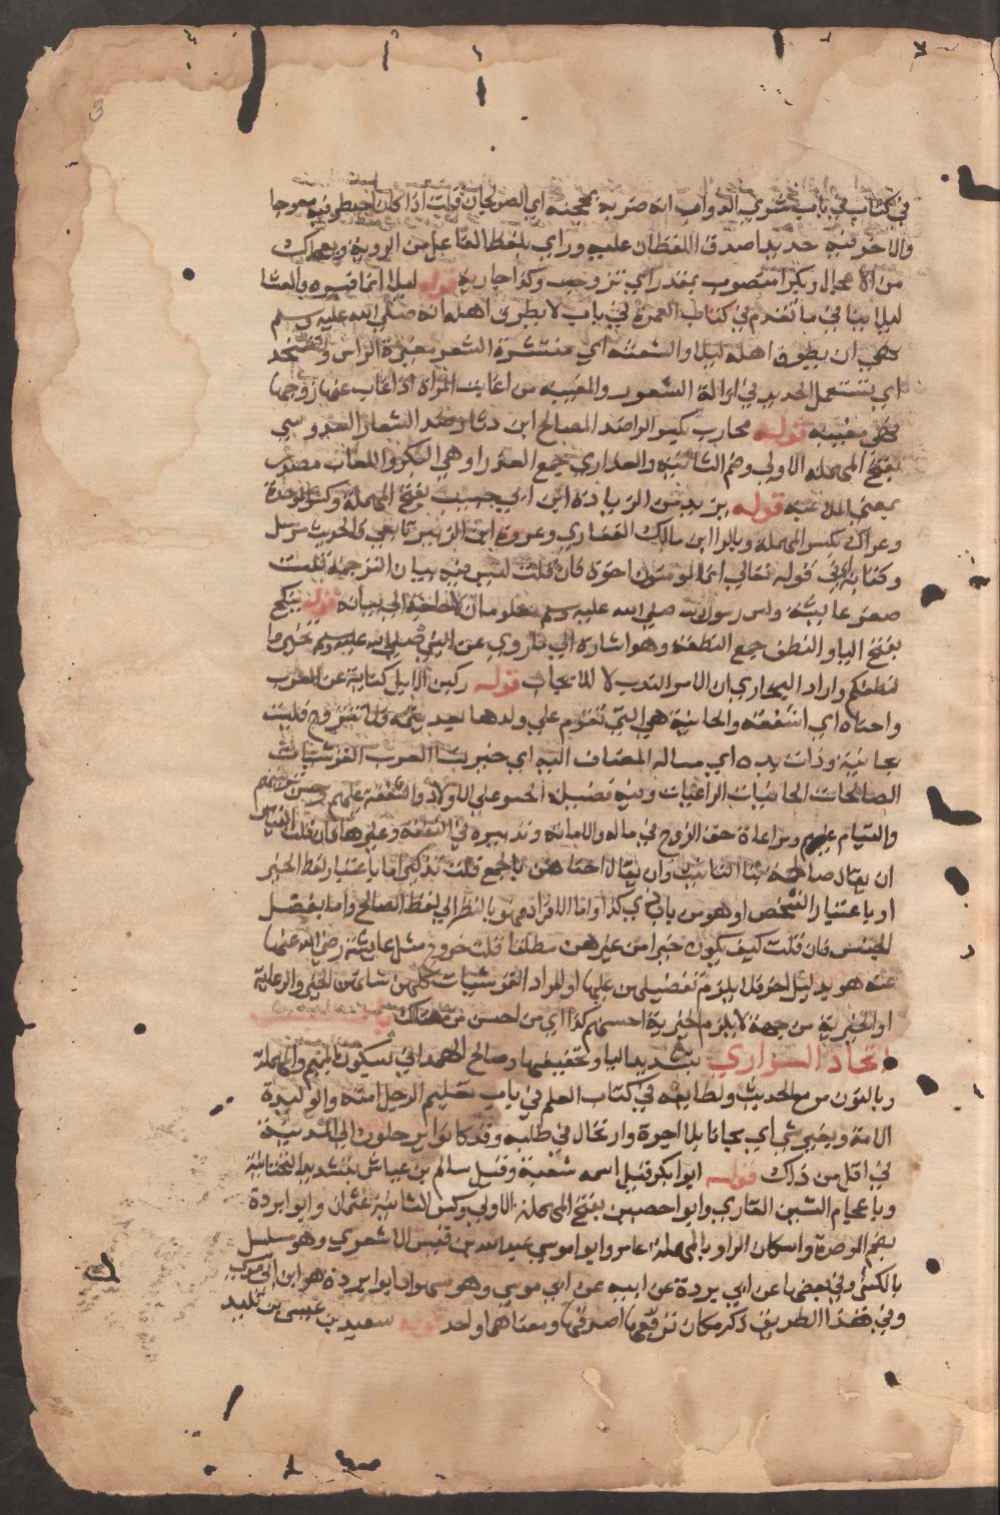 في كتاب في باب شري الدواب انه ضربه بمحجنه اي الصولجان قلت اذا كان احد طرفيه معوجا
والاخر فيه حديد اصدق اللفظان عليه وراي بلفظ الفاعل من الروية
من الاعجال وبكرا منصوب بمقدر اي تزوجت وكذا جارية قوله ليلا انما فسره بالعشا
ليلا ينافي ما تقدم في كتاب العمرة في باب لا يطرق اهله انه صلي الله عليه وسلم
نهي ان يطرق اهله ليلا والشعثة اي منتشرة الشعر مغبرة الراس وتستحد
اي تستعمل الحديد في ازالة الشعور والمغيبة من اغابت المراة اذا غاب عنها زوجها
فهي مغيبة قوله محارب بكسر الرا ضد المصالح ابن دثار ضد الشعار السدوسي
بفتح المهملة الاولي وضم الثانية والعذاري جمع العذرا وهي البكر واللعاب مصدر
بمعني الملاعبة قوله يزيد من الزيادة ابن ابي حبيب بفتح المهملة وكسر الموحدة
وعراك بكسر المهملة وبالرا ابن مالك الغفاري وعروة ابن الزبير تابعي فالحديث مرسل
وكتابه اي في قوله تعالي انما المومنون اخوة فان قلت ليس فيه بيان الترجمة قلت
صغر عايشة وكبر رسول الله صلي الله عليه وسلم معلومان قوله ينكح
بفتح اليا والنطف جمع النطفة وهو اشارة الي ما روي عن النبي صلي الله عليه وسلم تخيروا
لنطفكم واراد البخاري ان الامر للندب لا للايجاب قوله ركبن الابل كناية عن العرب
واحناه اي اشفقه والحانية هي التي تقوم علي ولدها بعد يتمه فلا تتزوج فليست
بحانية وذات يده اي ماله المضاف اليه اي خير نسا العرب القرشيات
الصالحات الحانيات الراعيات وفيه فضيلة الحنو علي الاولاد والشفقة عليهم وحسن تربيتهم
والقيام عليهم ومراعاة حق الزوج في ماله والامانة وتدبيره في النفقة وغيرها فان قلت القياس
ان يقال صالحة بتا التانيث وان يقال احناهن بالجمع قلت تذكيره اما باعتبار لفظ الخير
او باعتبار الشخص او هو من باب ذي كذا واما الافراد فهو بالنظر الي لفظ الصالح واما بقصد
الجنس فان قلت كيف يكون خيرا من غيرهن مطلقا قلت خروج مثل عايشة رضي الله عنها
عنه هو بدليل اخر فلا يلزم تفضيلهن عليها او المراد القرشيات كلهن
او الخيرية من جهة لا يلزم الخيرية احسنهم كذا اي من احسن من هنالك باب
اتخاذ السراري بتشديد اليا وتخفيفها وصالح الهمداني بسكون الميم والمهملة
وبالنون مر مع الحديث ولطايفه في كتاب العلم في باب تعليم الرجل امته والوليدة
الامة وبغير شي اي مجانا بلا اجرة وارتحال في طلبه وقد كانوا يرحلون الي المدينة
في اقل من ذلك قوله ابو بكر قيل اسمه شعبة وقيل سالم بن عياش بتشديد التحتانية
وباعجام الشين القاري وابو حصين بفتح المهملة الاولي وكسر الثانية عثمان وابو بردة
بضم الموحدة واسكان الرا وبالمهملة عامر وابو موسي عبد الله بن قيس الاشعري وهو مسلسل
بالكني وفي بعضها عن ابي بردة عن ابيه عن ابي موسي وهو سهو اذ ابو بردة هو ابن ابي موسي
وفي هذا الطريق ذكر مكان تزوجها اصدقها ومعناهما واحد قوله سعيد بن عيسي بن تليد